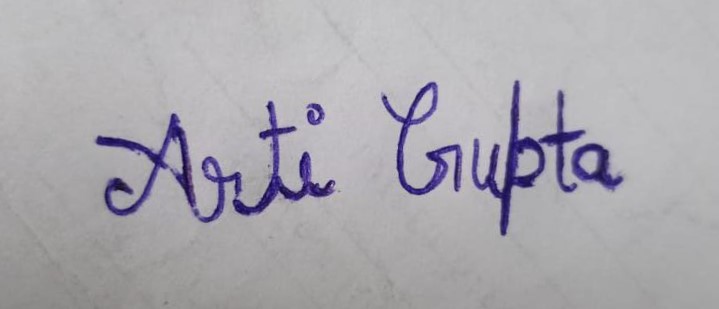 Arti Gupta